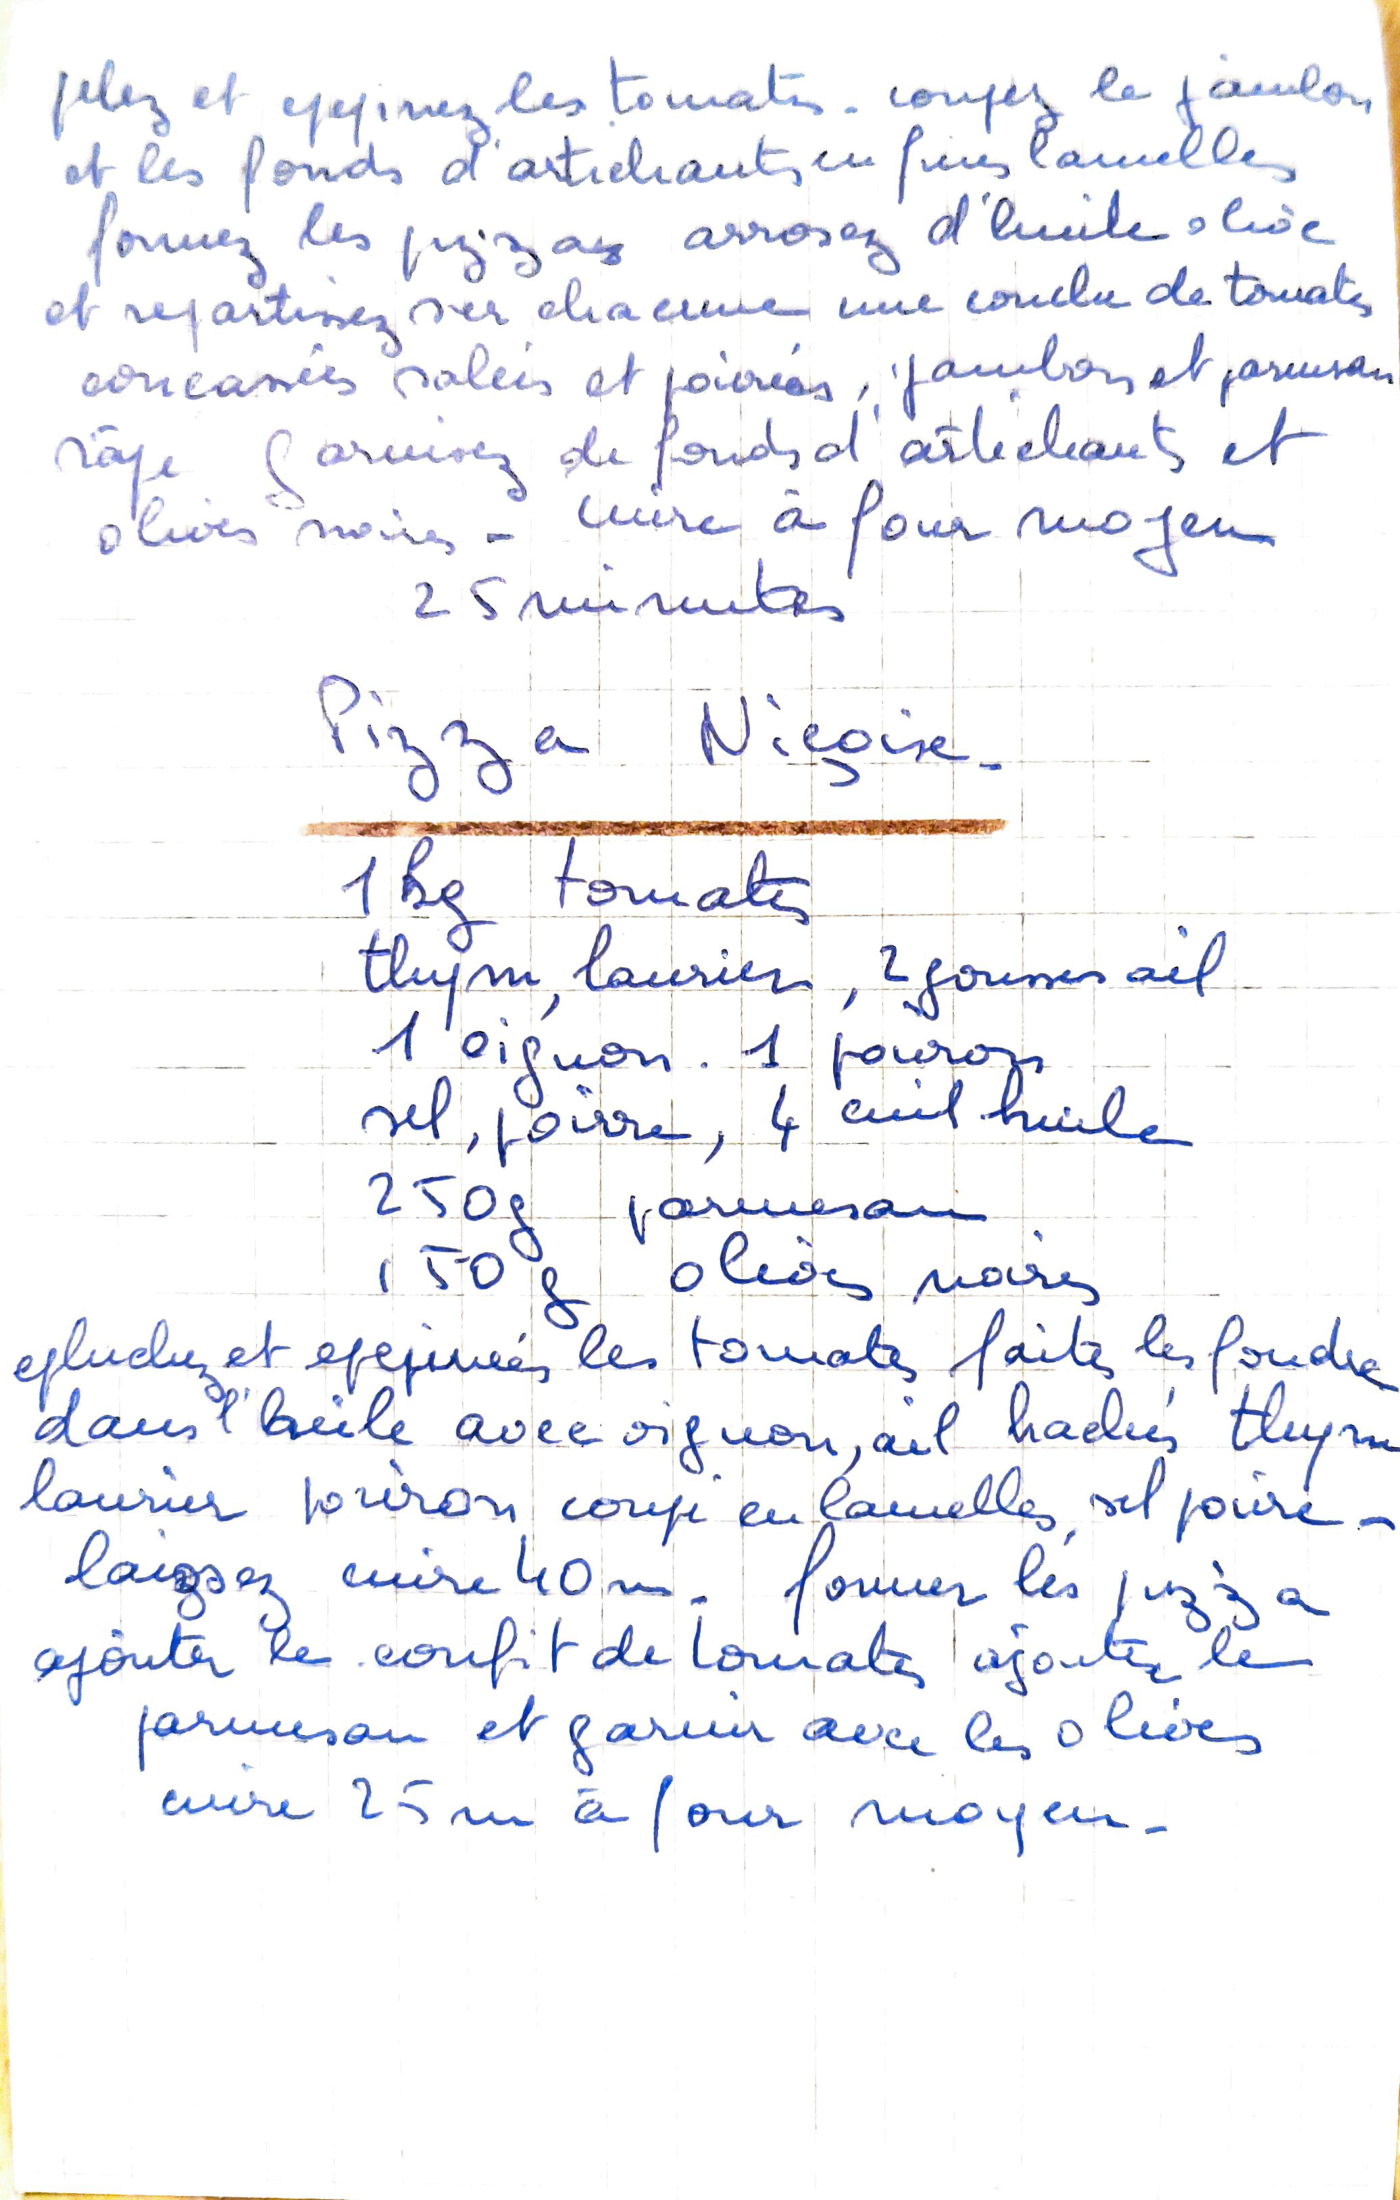 pelez et epepinez les tomates - coupez le jambon
et les fonds d'artichauts en fines lamelles
formez les pizzas arrosez d'huile olive
et repartissez sur chacune une couche de tomates
concassées salées et poivrées, jambon et parmesan
râpé garnissez de fonds d'artichauts et
olives noires - cuire à four moyen
25 minutes
Pizza Niçoise -
1 kg tomates
thym, laurier, 2 gousses ail
1 oignon. 1 poivron
sel, poivre, 4 cuil huile
250g parmesan
150g olives noires
epluchez et epepinés les tomates faites les fondre
dans l'huile avec oignon, ail hachés thym
laurier poivron coupé en lamelles, sel poivre -
laissez cuire 40 m - former les pizza
ajouter le confit de tomates ajoutez le
parmesan et garnir avec les olives
cuire 25 m à four moyen -